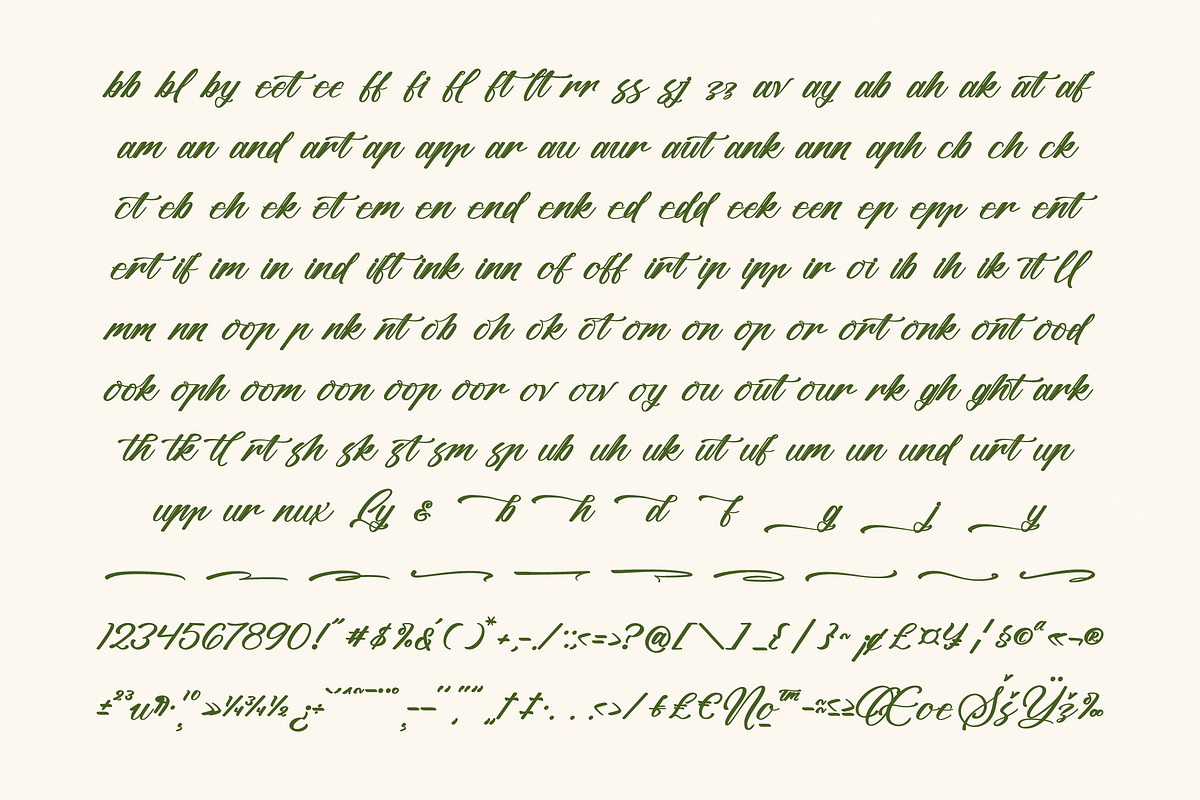 bb bl by eet ee ff fi fl ft tt rr ss sj zz av ay ab ah ak at af
am an and art ap app ar au aur aut ank ann aph cb ch ck
ct eb eh ek et em en end enk ed edd eek een ep epp er ent
ert if im in ind ift ink inn of off irt ip ipp ir oi ib ih ik it ll
mm nn oop p nk nt ob oh ok ot om on op or ort onk ont ood
ook oph oom oon oop oor ov ow oy ou out our rk gh ght ark
th tk tl rt sh sk st sm sp ub uh uk ut uf um un und urt up
upp ur nux Ly & b h d f g j y
1234567890!" #$%&'()*+,-./:;<=>?@[\]_{|}~ ¡¢£¤¥¦§©ª«¬®
±²³µ¶·¸¹º»¼¾½¿÷ ‚ – — ‘ ’ “ ” „ † ‡ • . . . ‹ › ⁄ ₺ ₤ € № ™ − ≈ ≤ ≥ Œ œ Š š Ÿ ž ‰